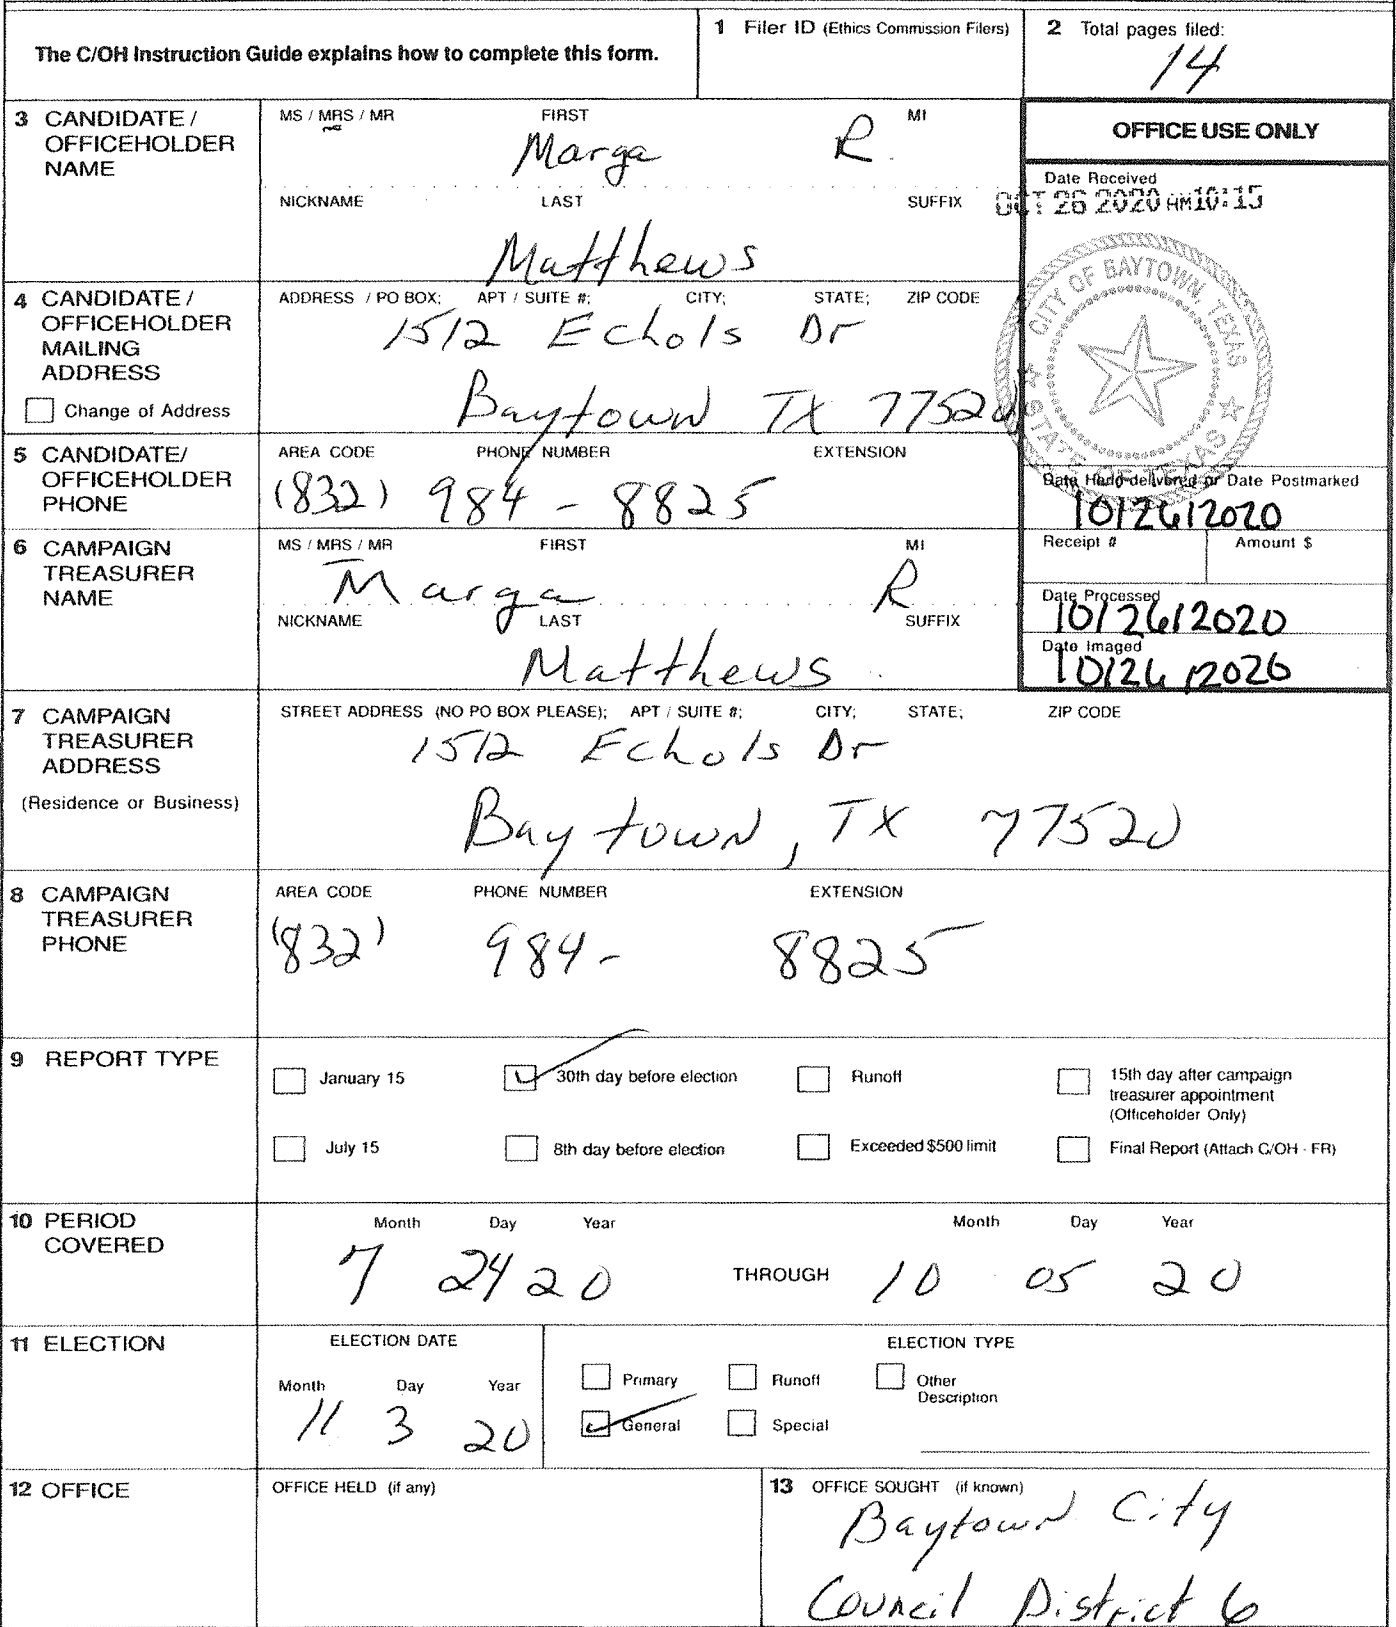 The C/OH Instruction Guide explains how to complete this form.
1 Filer ID (Ethics Commission Filers)
2 Total pages filed:
14
3 CANDIDATE / OFFICEHOLDER NAME
MS / MRS / MR FIRST MI
Marga R.
NICKNAME LAST SUFFIX
Matthews
OFFICE USE ONLY
Date Received
OCT 26 2020 AM 10:15
CITY OF BAYTOWN, TEXAS
STATE OF TEXAS
Date Hand-delivered or Date Postmarked
10/26/2020
Receipt # Amount $
Date Processed
10/26/2020
Date Imaged
10/26/2020
4 CANDIDATE / OFFICEHOLDER MAILING ADDRESS
Change of Address
ADDRESS / PO BOX; APT / SUITE #; CITY; STATE; ZIP CODE
1512 Echols Dr
Baytown TX 77520
5 CANDIDATE/ OFFICEHOLDER PHONE
AREA CODE PHONE NUMBER EXTENSION
(832) 984 - 8825
6 CAMPAIGN TREASURER NAME
MS / MRS / MR FIRST MI
Marga R
NICKNAME LAST SUFFIX
Matthews
7 CAMPAIGN TREASURER ADDRESS
(Residence or Business)
STREET ADDRESS (NO PO BOX PLEASE); APT / SUITE #; CITY; STATE; ZIP CODE
1512 Echols Dr
Baytown, TX 77520
8 CAMPAIGN TREASURER PHONE
AREA CODE PHONE NUMBER EXTENSION
(832) 984 - 8825
9 REPORT TYPE
January 15
30th day before election
Runoff
15th day after campaign treasurer appointment (Officeholder Only)
July 15
8th day before election
Exceeded $500 limit
Final Report (Attach C/OH - FR)
10 PERIOD COVERED
Month Day Year Month Day Year
7 24 20 THROUGH 10 05 20
11 ELECTION
ELECTION DATE
Month Day Year
11 3 20
ELECTION TYPE
Primary
Runoff
Other Description
General
Special
12 OFFICE
OFFICE HELD (if any)
13 OFFICE SOUGHT (if known)
Baytown City
Council District 6